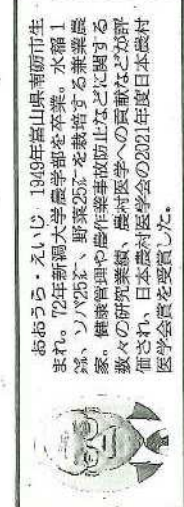 おおうら・えいじ 1949年富山県南砺市生
まれ。72年新潟大学農学部を卒業。水稲1
㌶、ソバ25㌃、野菜25㌃を栽培する兼業農
家。健康管理や農作業事故防止などに関する
数々の研究業績、農村医学への貢献などが評
価され、日本農村医学会の2021年度日本農村
医学会賞を受賞した。